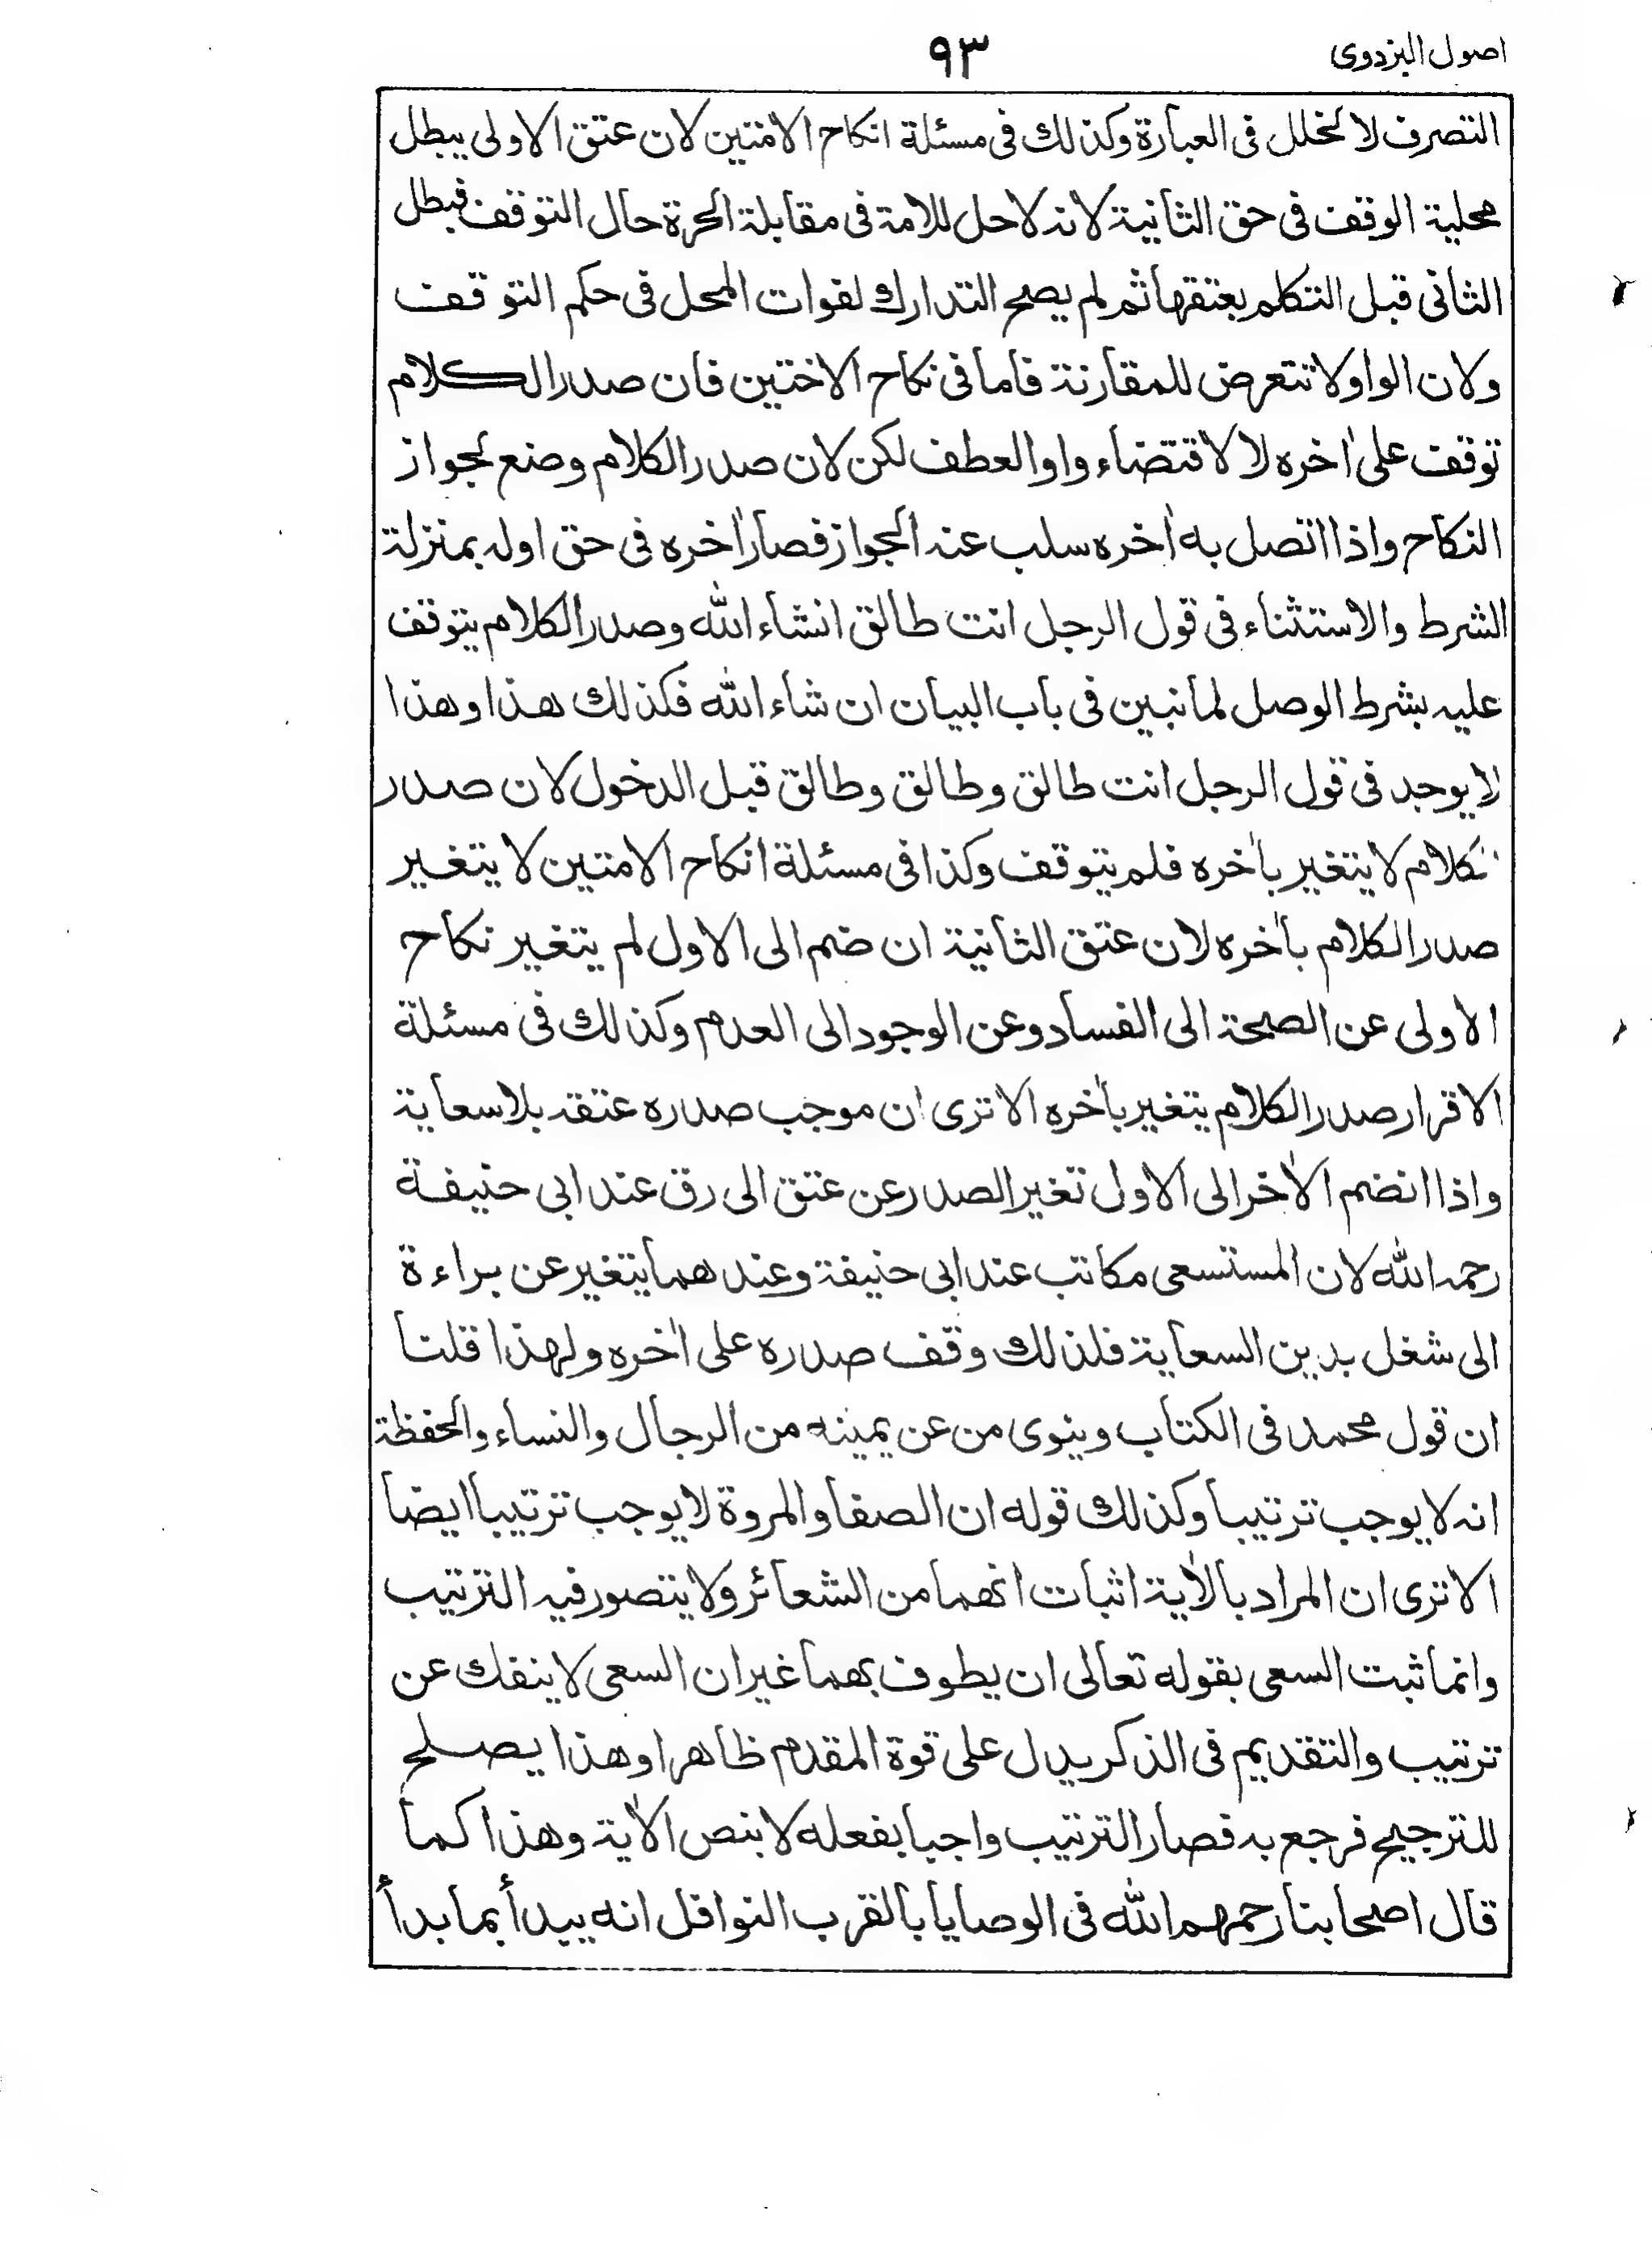 اصول البزدوى
٩٣
التصرف لا لخلل فى العبارة وكذلك فى مسئلة انكاح الامتين لان عتق الاولى يبطل
محلية الوقف فى حق الثانية لانه لاحل للامة فى مقابلة الحرة حال التوقف فبطل
الثانى قبل التكلم بعتقها ثم لم يصح التدارك لفوات المحل فى حكم التوقف
ولان الواو لا تتعرض للمقارنة فاما فى نكاح الاختين فان صدر الكلام
توقف على اٰخره لا لاقتضاء واو العطف لكن لان صدر الكلام وضع لجواز
النكاح واذا اتصل به اٰخره سلب عنه الجواز فصار اٰخره فى حق اوله بمنزلة
الشرط والاستثناء فى قول الرجل انت طالق انشاء الله وصدر الكلام يتوقف
عليه بشرط الوصل لما نبين فى باب البيان ان شاء الله فكذلك هذا وهذا
لا يوجد فى قول الرجل انت طالق وطالق وطالق قبل الدخول لان صدر
الكلام لا يتغير باٰخره فلم يتوقف وكذا فى مسئلة انكاح الامتين لا يتغير
صدر الكلام باٰخره لان عتق الثانية ان ضم الى الاول لم يتغير نكاح
الاولى عن الصحة الى الفساد وعن الوجود الى العدم وكذلك فى مسئلة
الاقرار صدر الكلام يتغير باٰخره الا ترى ان موجب صدره عتقه بلا سعاية
واذا انضم الاٰخر الى الاول تغير الصدر عن عتق الى رق عند ابى حنيفة
رحمه الله لان المستسعى مكاتب عند ابى حنيفة وعندهما يتغير عن براءة
الى شغل بدين السعاية فلذلك وقف صدره على اٰخره ولهذا قلنا
ان قول محمد فى الكتاب وينوى من عن يمينه من الرجال والنساء والحفظة
انه لا يوجب ترتيبا وكذلك قوله ان الصفا والمروة لا يوجب ترتيبا ايضا
الا ترى ان المراد بالاٰية اثبات انهما من الشعائر ولا يتصور فيه الترتيب
وانما ثبت السعى بقوله تعالى ان يطوف بهما غير ان السعى لا ينفك عن
ترتيب والتقديم فى الذكر يدل على قوة المقدم ظاهرا وهذا يصلح
للترجيح فرجع به فصار الترتيب واجبا بفعله لا بنص الاٰية وهذا كما
قال اصحابنا رحمهم الله فى الوصايا بالقرب النوافل انه يبدأ بما بدأ